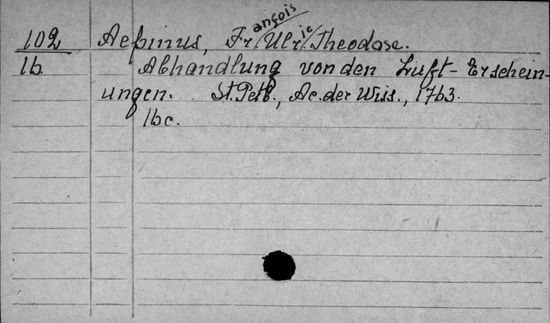 102 Aepinus, Fr/ançois/Ulr/ic/Theodose.
1b. Abhandlung von den Luft-Erschein-
ungen. St. Petb., Ac. der Wiss., 1763.
1bc.